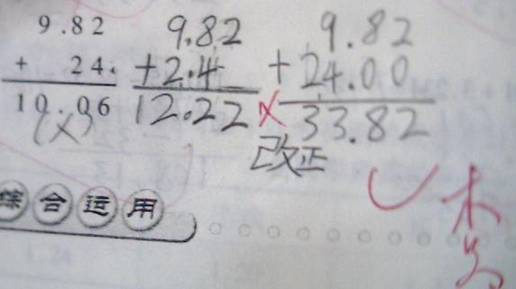 9.82 9.82 9.82
+ 24. +2.4 +24.00
10.06 12.22 33.82
(×) 改正
综合运用